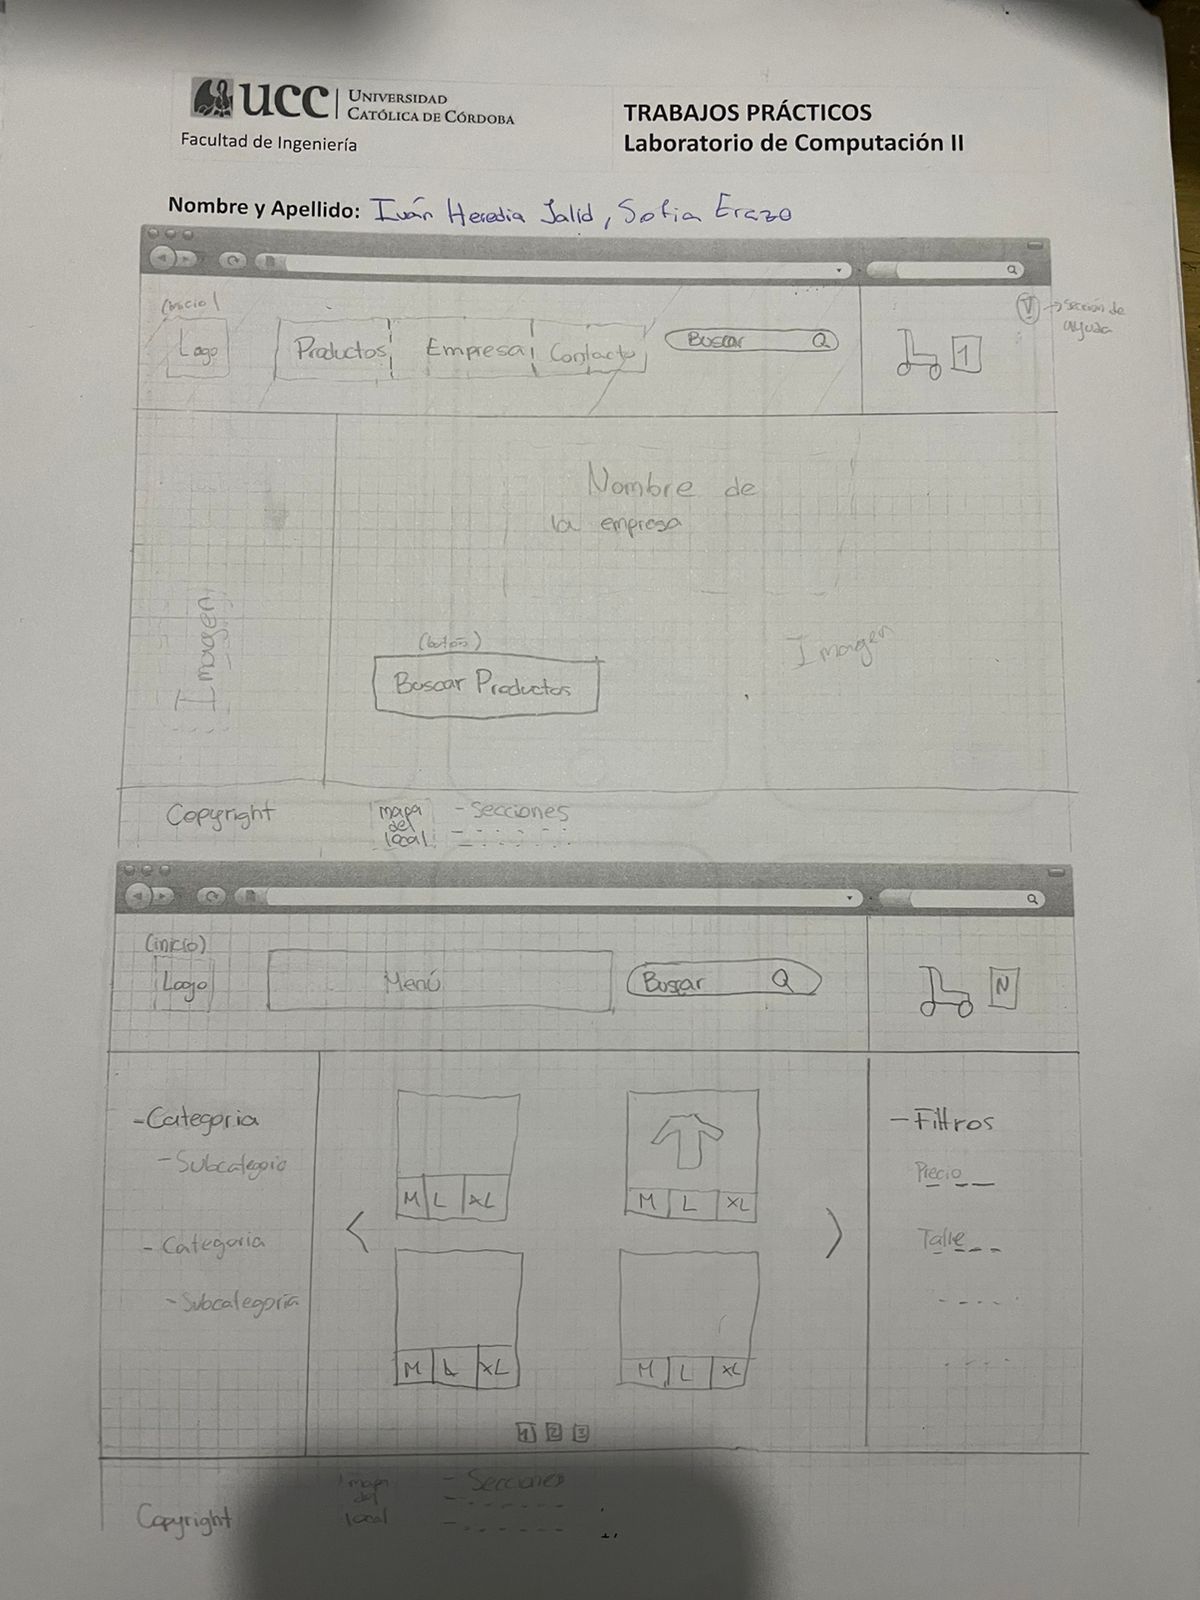 UCC UNIVERSIDAD
CATÓLICA DE CÓRDOBA
Facultad de Ingeniería
TRABAJOS PRÁCTICOS
Laboratorio de Computación II
Nombre y Apellido: Iván Heredia Jalid, Sofia Erazo
(inicio)
Logo
Productos
Empresa
Contacto
Buscar
1
→ Sección de
ayuda
Nombre de
la empresa
Imagen
(botón)
Buscar Productos
Imagen
Copyright
mapa
del
local
- Secciones
(inicio)
Logo
Menú
Buscar
N
- Categoria
- Subcategoria
- Categoria
- Subcategoria
M L XL
M L XL
<
>
M L XL
M L XL
1 2 3
- Filtros
Precio
Talle
Copyright
mapa
del
local
- Secciones